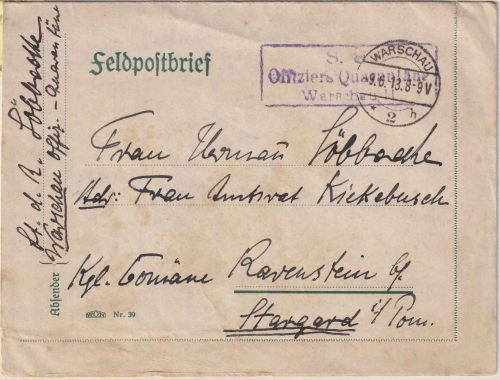 Feldpostbrief
S.
Offiziers Quarantäne
Warschau
WARSCHAU
9.6.13.8-9V
* 2 h
Frau Herman Löbbecke
Adr: Frau Amtsrat Kickebusch
Kgl. Domäne Ravenstein b/
Stargard i/ Pom.
Absender
Lt. d. R. Löbbecke
Warschau Offiz.-Quarantäne
Nr. 39